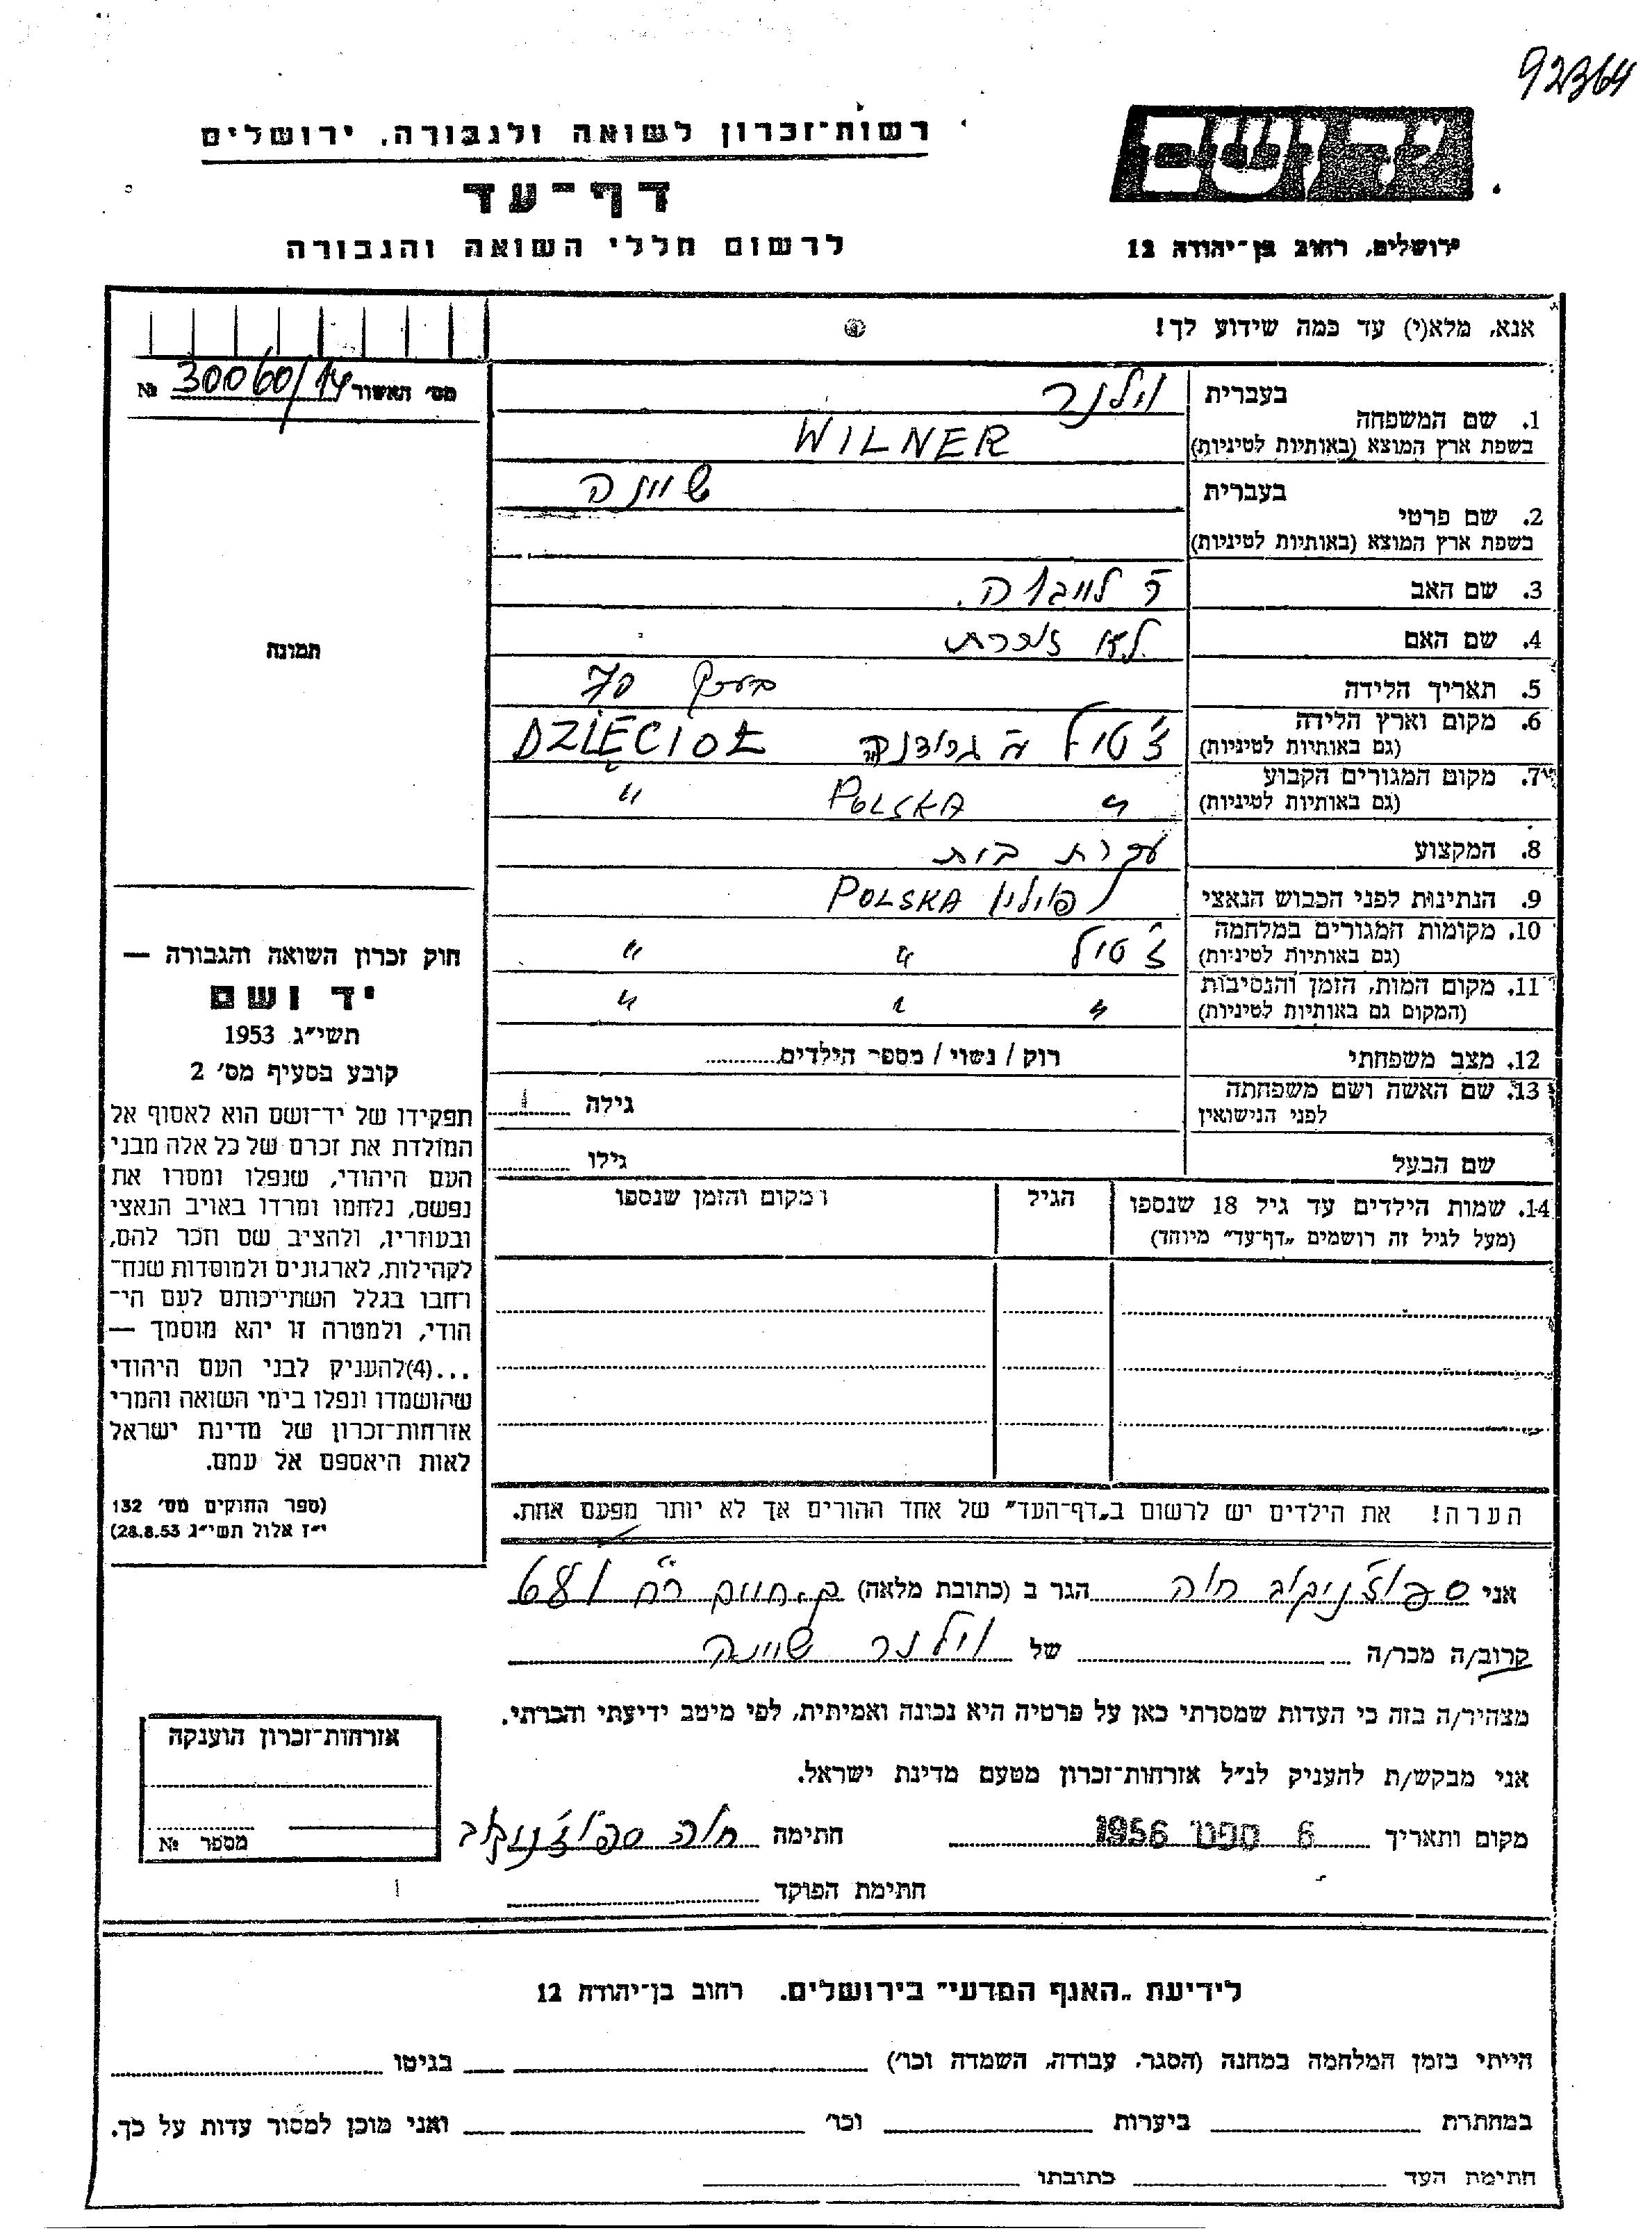 92364
רשות־זכרון לשואה ולגבורה, ירושלים
דף־עד
לרשום חללי השואה והגבורה
יד ושם
ירושלים, רחוב בן־יהודה 12
אנא, מלא(י) עד כמה שידוע לך!
מס׳ האשור 30060/14 №
1. שם המשפחה
בעברית וילנר
בשפת ארץ המוצא (באותיות לטיניות) WILNER
2. שם פרטי
בעברית שיינה
בשפת ארץ המוצא (באותיות לטיניות)
3. שם האב
4. שם האם לא זוכרת
5. תאריך הלידה 70
6. מקום וארץ הלידה
(גם באותיות לטיניות) ז׳טיל DZIECIOŁ
7. מקום המגורים הקבוע
(גם באותיות לטיניות) " POLSKA "
8. המקצוע עקרת בית
9. הנתינות לפני הכבוש הנאצי פולין POLSKA
10. מקומות המגורים במלחמה
(גם באותיות לטיניות) ז׳טיל " "
11. מקום המות, הזמן והנסיבות
(המקום גם באותיות לטיניות) " " "
12. מצב משפחתי רוק / נשוי / מספר הילדים
13. שם האשה ושם משפחתה
לפני הנישואין גילה
שם הבעל גילו
14. שמות הילדים עד גיל 18 שנספו
(מעל לגיל זה רושמים „דף־עד״ מיוחד)
הגיל
ומקום והזמן שנספו
הערה! את הילדים יש לרשום ב„דף־העד״ של אחד ההורים אך לא יותר מפעם אחת.
תמונה
חוק זכרון השואה והגבורה —
יד ושם
תשי״ג 1953
קובע בסעיף מס׳ 2
תפקידו של יד־ושם הוא לאסוף אל
המולדת את זכרם של כל אלה מבני
העם היהודי, שנפלו ומסרו את
נפשם, נלחמו ומרדו באויב הנאצי
ובעוזריו, ולהציב שם וזכר להם,
לקהילות, לארגונים ולמוסדות שנח־
רחבו בגלל השתייכותם לעם הי־
הודי, ולמטרה זו יהא מוסמך —
...(4)להעניק לבני העם היהודי
שהושמדו ונפלו בימי השואה והמרי
אזרחות־זכרון של מדינת ישראל
לאות היאספם אל עמם.
(ספר החוקים מס׳ 132
י״ז אלול תשי״ג 28.8.53)
אני חיה הגר ב (כתובת מלאה)
קרוב/ה מכר/ה של וילנר שיינה
מצהיר/ה בזה כי העדות שמסרתי כאן על פרטיה היא נכונה ואמיתית, לפי מיטב ידיעתי והכרתי.
אני מבקש/ת להעניק לנ״ל אזרחות־זכרון מטעם מדינת ישראל.
מקום ותאריך 6 ספט׳ 1956 חתימה חיה
חתימת הפוקד
אזרחות־זכרון הוענקה
מספר №
לידיעת „האגף המדעי״ בירושלים. רחוב בן־יהודה 12
הייתי בזמן המלחמה במחנה (הסגר, עבודה, השמדה וכו׳) בגיטו
במחתרת ביערות וכו׳ ואני מוכן למסור עדות על כך.
חתימת העד כתובתו